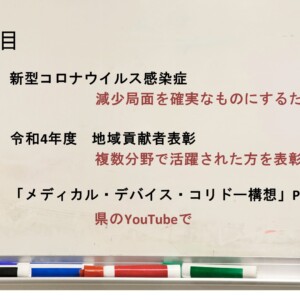 目
新型コロナウイルス感染症
減少局面を確実なものにするた
令和4年度　地域貢献者表彰
複数分野で活躍された方を表彰
「メディカル・デバイス・コリドー構想」P
県のYouTubeで